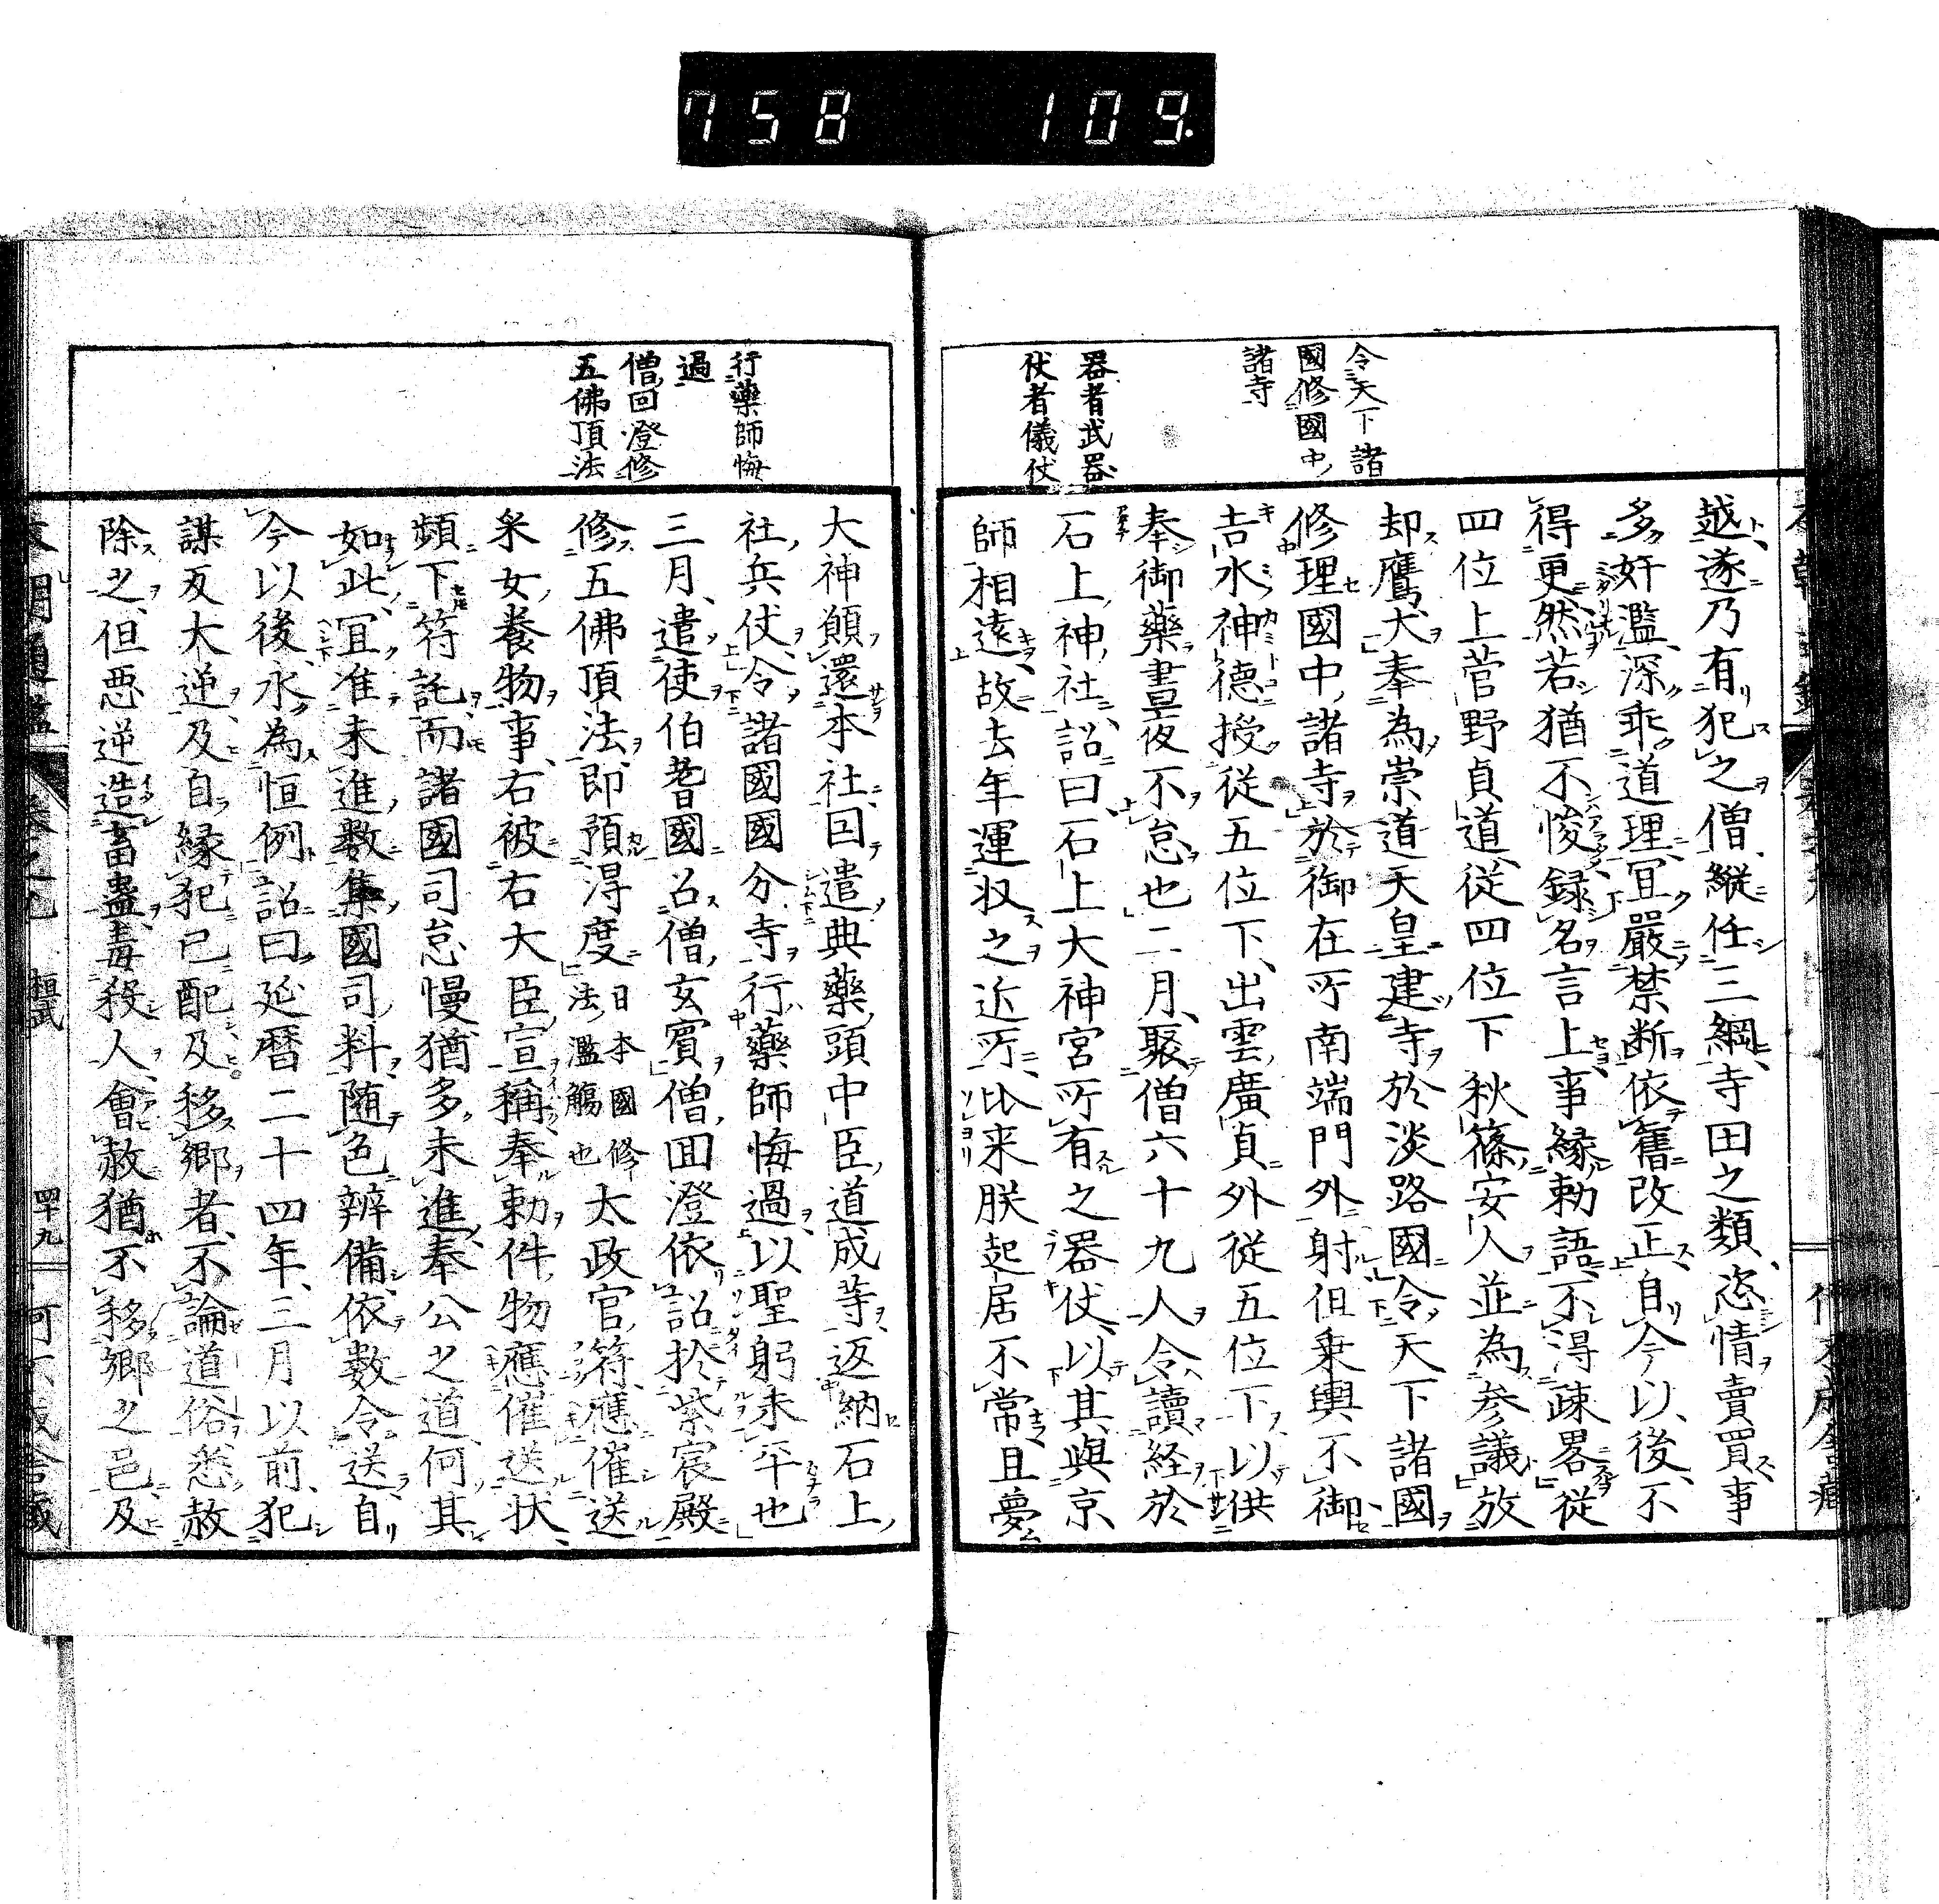 758 109.
令天下諸
國修國中
諸寺
器者武器
仗者儀仗
越遂乃有犯之僧縦任三綱寺田之類恣情賣買事
多奸濫深乖道理冝嚴禁断依舊改正自今以後不
得更然若猶不悛録名言上事縁勅語不得疎畧從
四位上菅野貞道從四位下秋篠安人並為参議放
却鷹犬奉為崇道天皇建寺於淡路國令天下諸國
修理國中諸寺於御在所南端門外射但乗輿不御
吉水神德授從五位下出雲廣貞外從五位下以供
奉御藥晝夜不怠也二月聚僧六十九人令讀経於
石上神社詔曰石上大神宮所有之器仗以其與京
師相遠故去年運収之近所比来朕起居不常且夢
行藥師悔
過
僧回澄修
五佛頂法
大神願還本社回遣典藥頭中臣道成等返納石上
社兵仗令諸國國分寺行藥師悔過以聖躬未平也
三月遣使伯耆國召僧玄賓僧回澄依詔於紫宸殿
修五佛頂法即預淂度日本國修法濫觴也太政官符應催送
采女養物事右被右大臣宣稱奉勅件物應催送状
頻下符託而諸國司怠慢猶多未進奉公之道何其
如此冝准未進数集國司料随色辨備依數令送自
今以後永為恒例詔曰延暦二十四年三月以前犯
謀反大逆及自縁犯已配及移郷者不論道俗悉赦
除之但悪逆造畜蠱毒殺人會赦猶不移郷之邑及
桓武
四十九